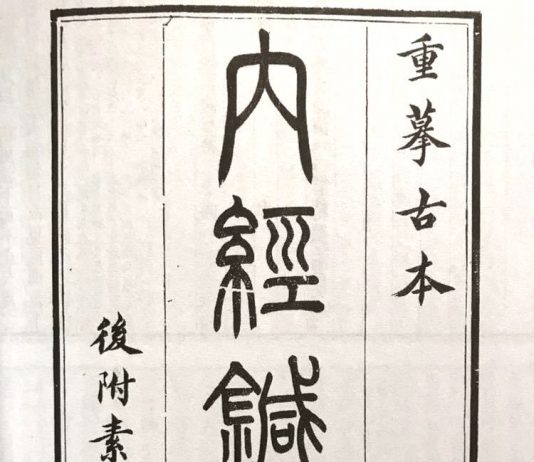 重摹古本
內經鍼
後附素